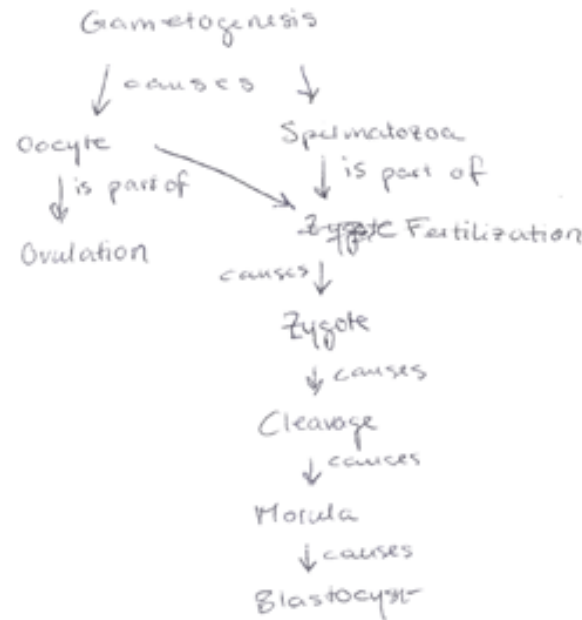 Gametogenesis
causes
Oocyte Spermatozoa
is part of is part of
Ovulation Zygote Fertilization
causes
Zygote
causes
Cleavage
causes
Morula
causes
Blastocyst